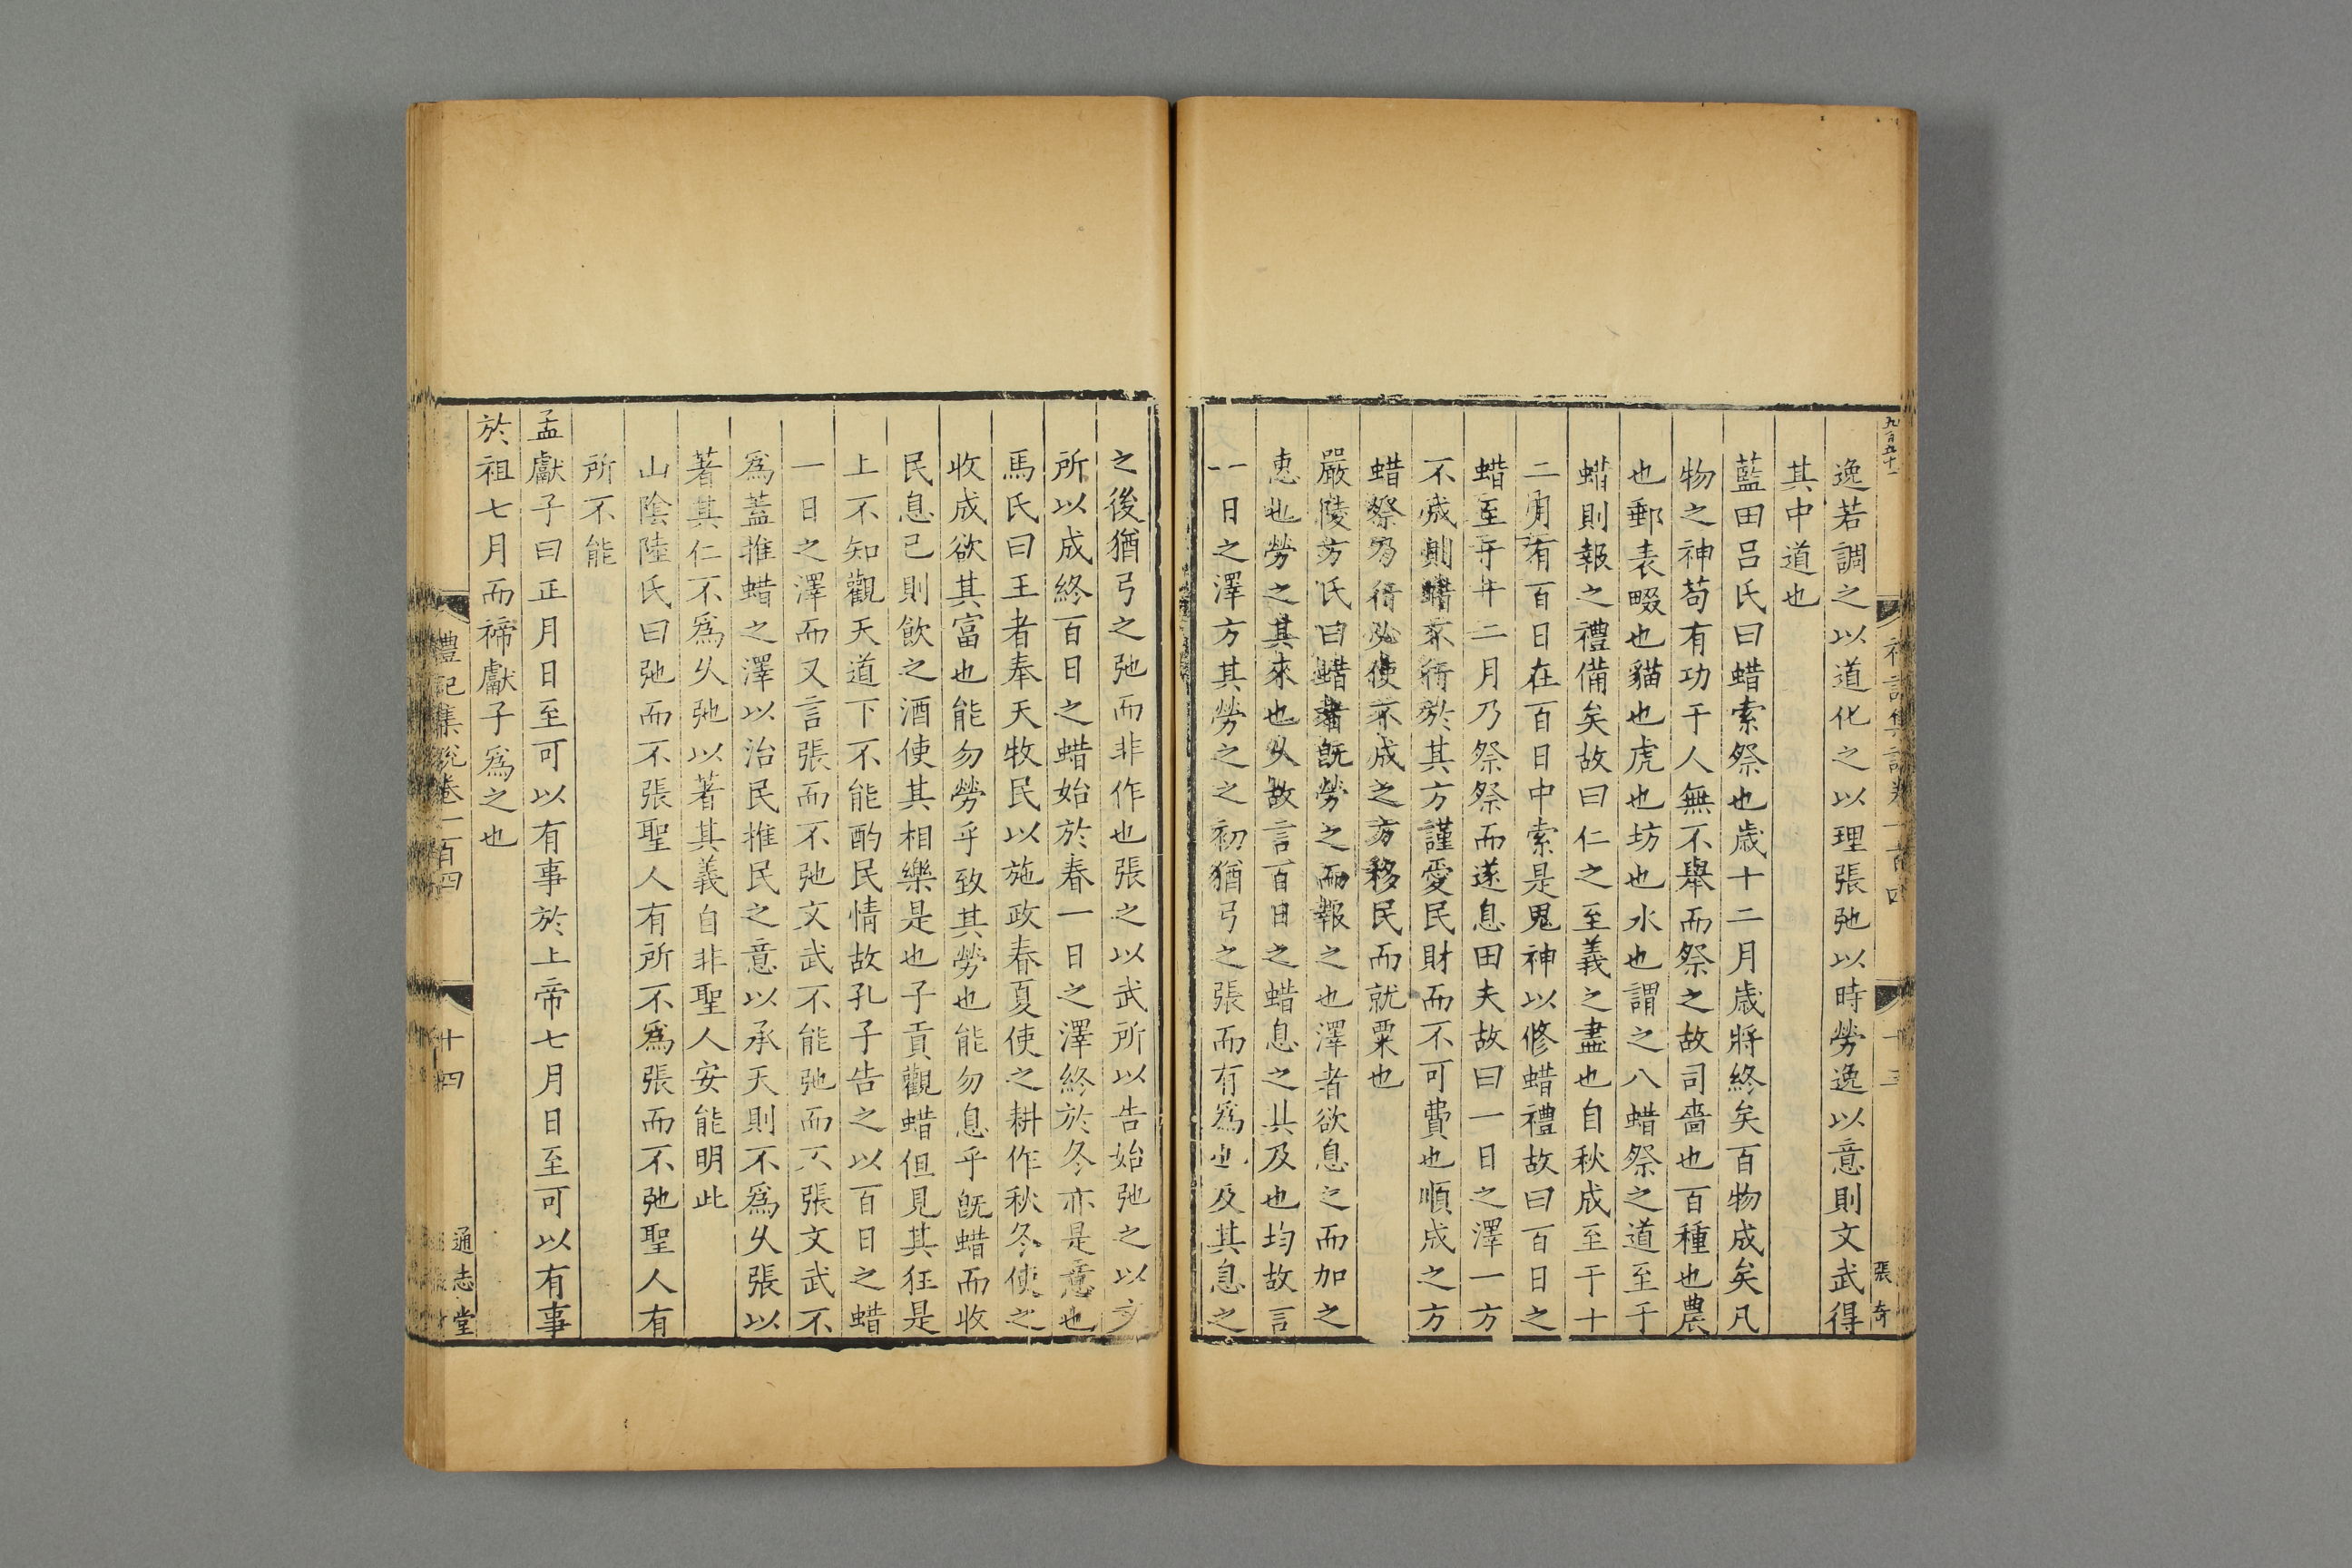 九百五十一
禮記集說卷一百四
十三
張奇
逸若調之以道化之以理張弛以時勞逸以意則文武得
其中道也
藍田呂氏曰蜡索祭也歲十二月歲將終矣百物成矣凡
物之神苟有功于人無不舉而祭之故司嗇也百種也農
也郵表畷也貓也虎也坊也水也謂之八蜡祭之道至于
蜡則報之禮備矣故曰仁之至義之盡也自秋成至于十
二月有百日在百日中索是鬼神以修蜡禮故曰百日之
蜡至于十二月乃祭祭而遂息田夫故曰一日之澤一方
不成則蜡不行於其方謹愛民財而不可費也順成之方
蜡祭乃行必使不成之方移民而就粟也
嚴陵方氏曰蜡者旣勞之而報之也澤者欲息之而加之
惠也勞之其來也乆故言百日之蜡息之其及也均故言
一日之澤方其勞之之初猶弓之張而有爲也及其息之
之後猶弓之弛而非作也張之以武所以告始弛之以文
所以成終百日之蜡始於春一日之澤終於冬亦是意也
馬氏曰王者奉天牧民以施政春夏使之耕作秋冬使之
收成欲其富也能勿勞乎致其勞也能勿息乎旣蜡而收
民息已則飲之酒使其相樂是也子貢觀蜡但見其狂是
上不知觀天道下不能酌民情故孔子告之以百日之蜡
一日之澤而又言張而不弛文武不能弛而不張文武不
爲蓋推蜡之澤以治民推民之意以承天則不爲乆張以
著其仁不爲乆弛以著其義自非聖人安能明此
山陰陸氏曰弛而不張聖人有所不爲張而不弛聖人有
所不能
孟獻子曰正月日至可以有事於上帝七月日至可以有事
於祖七月而禘獻子爲之也
禮記集說卷一百四
十四
通志堂